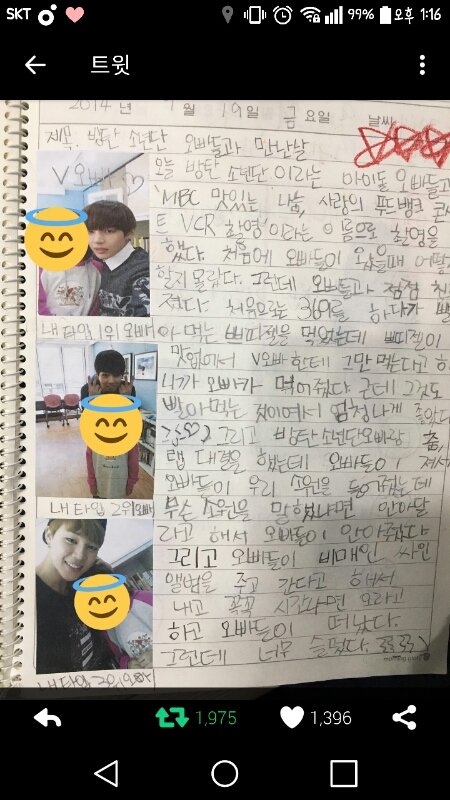 SKT 99% 오후 1:16
트윗
2014년 1월 19일 금요일 날씨
제목: 방탄소년단 오빠들과 만난날
V오빠♡
오늘 방탄소년단이라는 아이돌 오빠들과
"MBC 맛있는 나눔, 사랑의 푸드뱅크 콘서
트 VCR 촬영"이라는 이름으로 촬영을
했다. 처음에 오빠들이 왔을때 어떻
할지 몰랐다. 그런데 오빠들과 점점 친
져다. 처음으로는 369를 하다가 빨
내 타입 1위 오빠
아 먹는 쁘띠젤을 먹었는데 쁘띠젤이
맛없어서 V오빠한테 그만 먹는다고 하
니까 오빠가 먹어줬다 근데 그것도
빨아먹는 젤이여서 엄청나게 좋았다
그리고 방탄소년단오빠랑 춤,
랩 대결을 했는데 오빠들이 져서
내 타입 2위 오빠
오빠들이 우리 소원을 들어줬는데
무슨 소원을 말했냐면 안아달
라고 해서 오빠들이 안아줬다
그리고 오빠들이 비매인 싸인
앨범을 주고 간다고 해서
내고 꼭꼭 시간나면 오라고
하고 오빠들이 떠났다.
그런데 너무 슬펐다.
내 타입 3위
morning glory
1,975 1,396